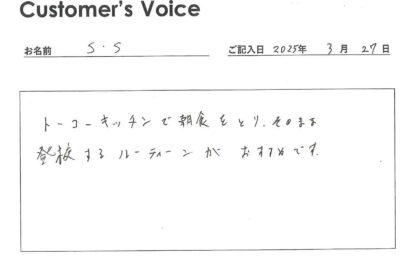 Customer's Voice
お名前 S・S ご記入日 2025年 3月 27日
トーコーキッチンで朝食をとり、そのまま
登校するルーティーンが おすすめです。